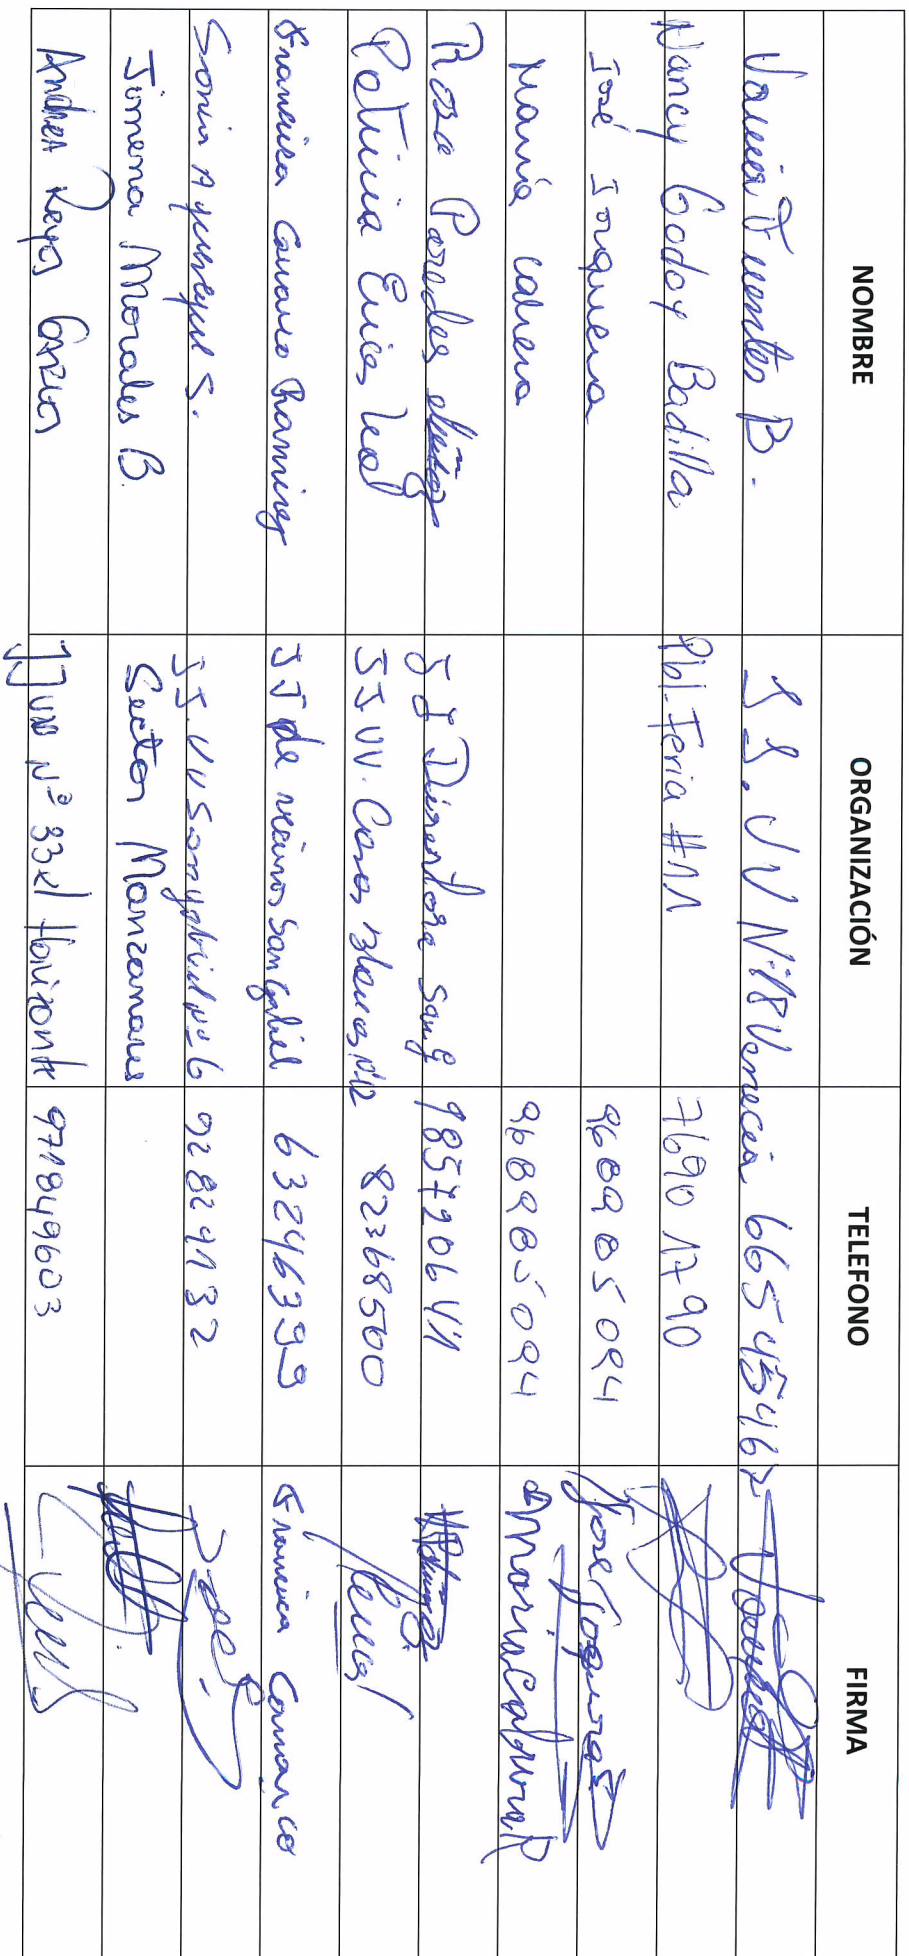 NOMBRE ORGANIZACIÓN TELEFONO FIRMA
Javiera Fuentes B. JJ. VV Nº18 Venecia 66545467
Nancy Godoy Badilla Pbl. Feria #11 76901790
José Jorquera 968985094 Jose Jorquera
María Cabrera 968985094 Maria Cabrera R
Rosa Paredes JJ Dinamarca 985720641
Petricia Erices Leal JJ VV. Casas Blancas Nº12 82368500
Francisca Camaño Ramirez JJ de vecinos San Gabriel 63246399 Francisca Camaño
Sonia S. JJ. VV San Gabriel Nº 6 92824132
Jimena Morales B. Sector Manzanares
Andrea Reyes JJ VV Nº 33 el Horizonte 971849603